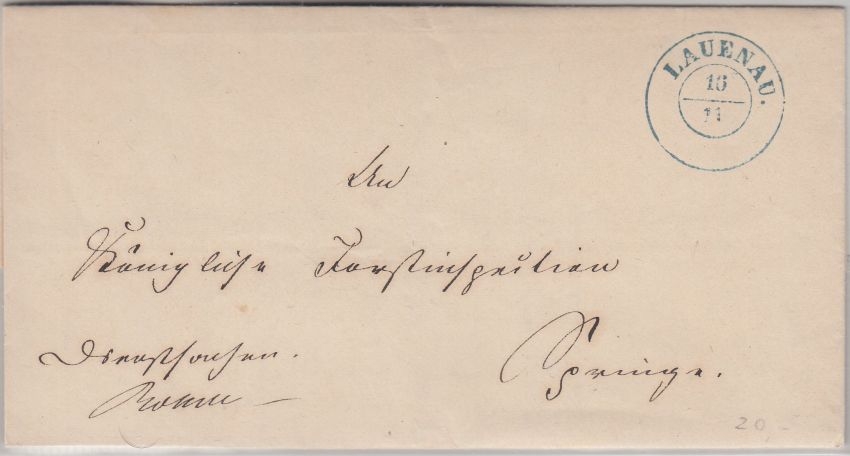 LAUENAU.
16
11
An
Königliche Forstinspection
Springe.
Dienstsachen.
20,-